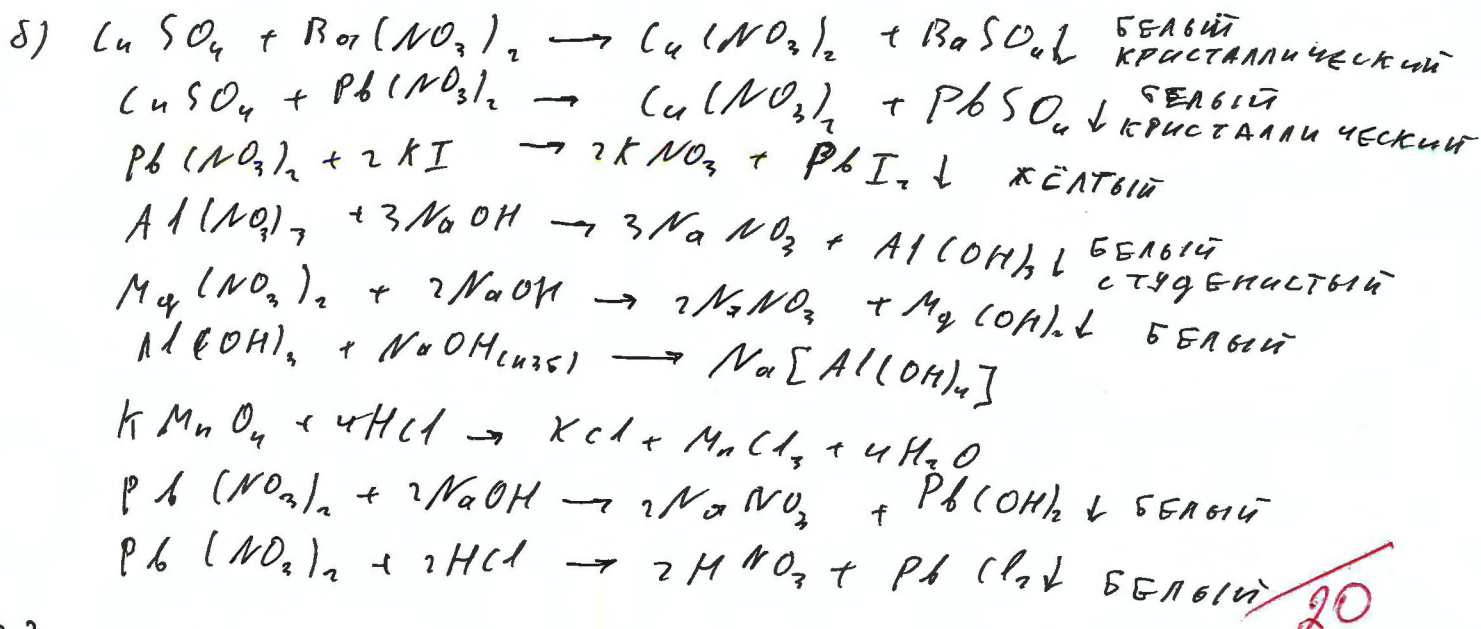 б) CuSO₄ + Ba(NO₃)₂ → Cu(NO₃)₂ + BaSO₄↓ БЕЛЫЙ КРИСТАЛЛИЧЕСКИЙ
CuSO₄ + Pb(NO₃)₂ → Cu(NO₃)₂ + PbSO₄↓ БЕЛЫЙ КРИСТАЛЛИЧЕСКИЙ
Pb(NO₃)₂ + 2KI → 2KNO₃ + PbI₂↓ ЖЁЛТЫЙ
Al(NO₃)₃ + 3NaOH → 3NaNO₃ + Al(OH)₃↓ БЕЛЫЙ СТУДЕНИСТЫЙ
Mg(NO₃)₂ + 2NaOH → 2NaNO₃ + Mg(OH)₂↓ БЕЛЫЙ
Al(OH)₃ + NaOH(изб) → Na[Al(OH)₄]
KMnO₄ + 4HCl → KCl + MnCl₃ + 4H₂O
Pb(NO₃)₂ + 2NaOH → 2NaNO₃ + Pb(OH)₂↓ БЕЛЫЙ
Pb(NO₃)₂ + 2HCl → 2HNO₃ + PbCl₂↓ БЕЛЫЙ
20